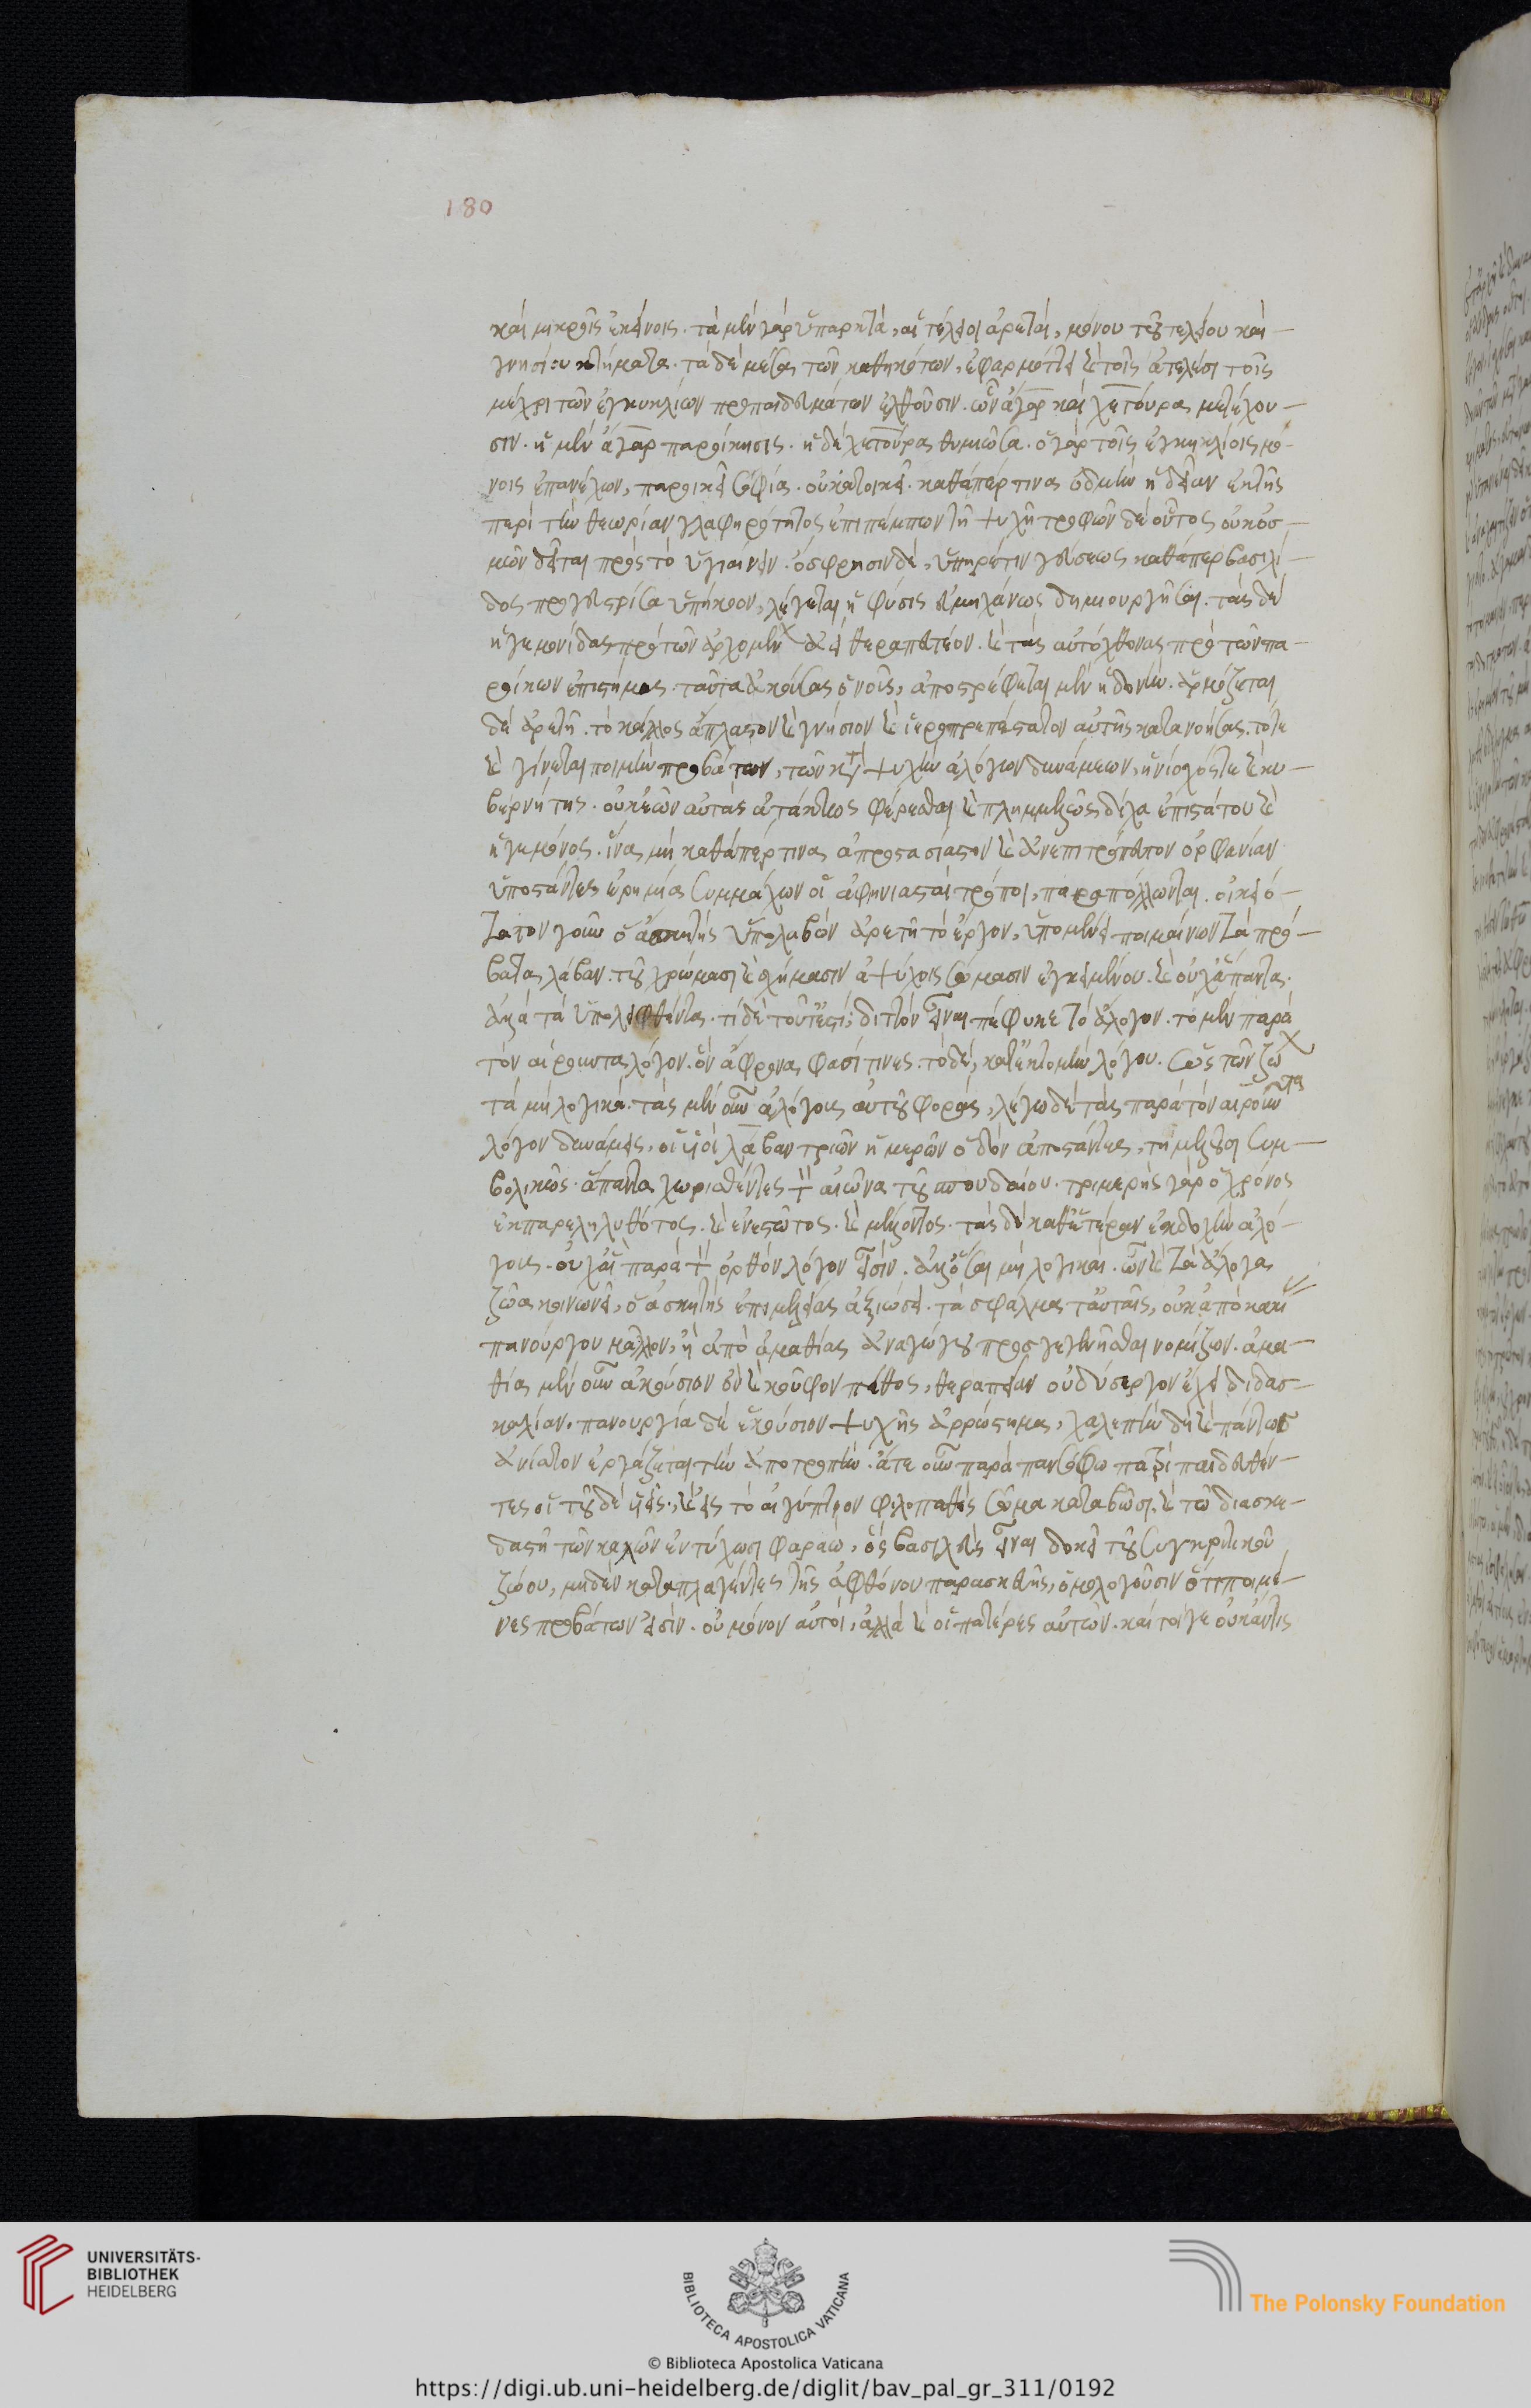 180
καὶ μικροῖς ἐκείνοις. τὰ μὲν γὰρ ὑπαρκτὰ, αἱ τέλειοι ἀρεταὶ, μόνου τοῦ τελείου καὶ
γνησίου κτήματα. τὰ δὲ μέσα τῶν καθηκότων, ἐφαρμόττει καὶ τοῖς ἀτελέσι τοῖς
μέχρι τῶν ἐγκυκλίων προπαιδευμάτων ἐλθοῦσιν. ὧν ἄγαρ καὶ χετούρα μετέχου-
σιν. ἡ μὲν ἄγαρ παροίκησις. ἡ δὲ χετούρας θυμιῶσα. ὁ γὰρ τοῖς ἐγκυκλίοις μό-
νοις ἐπανέχων, παροικεῖ σοφίας. οὐ κατοικεῖ. καθάπερ τινας ὀδμὴν ἡδεῖαν ἐκ τῆς
περὶ τὴν θεωρίαν γλαφυρότητος ἐπιπέμπων τῇ ψυχῇ τροφῶν δὲ οὗτος οὐκ ὀσ-
μῶν δεῖται πρὸς τὸ ὑγιαίνειν. ὄσφρησιν δὲ, ὑπηρέτιν γεύσεως καθάπερ βασιλί-
δος προγευστρίδα ὑπήκοον, λέγεται ἡ φύσις εὐμηχάνως δημιουργῆσαι. τὰς δὲ
ἡγεμονίδας πρὸ τῶν ἀρχομένων ἀεὶ θεραπευτέον. καὶ τὰς αὐτόχθονας πρὸ τῶν πα-
ροίκων ἐπιστήμας. ταῦτα ἀκούσας ὁ νοῦς, ἀποστρέφεται μὲν ἡδονὴν. ἁρμόζεται
δὲ ἀρετῇ. τὸ κάλλος ἄπλαστον καὶ γνήσιον καὶ ἱεροπρεπέστατον αὐτῆς κατανοήσας. τότε
καὶ γίνεται ποιμὴν προβάτων, τῶν κατὰ ψυχὴν ἀλόγων δυνάμεων, ἡνίοχός τε καὶ κυ-
βερνήτης. οὐκ ἐῶν αὐτὰς ἀτάκτως φέρεσθαι καὶ πλημμελῶς δίχα ἐπιστάτου καὶ
ἡγεμόνος. ἵνα μὴ καθάπερ τινας ἀπροστασίαστον καὶ ἀνεπιτρόπευτον ὀρφανίαν
ὑποστάντες ἐρημίας συμμάχων οἱ ἀφηνιασταὶ τρόποι, παραπόλλωνται. οἰκειό-
τατον γοῦν ὁ ἀσκητὴς ὑπολαβὼν ἀρετῇ τὸ ἔργον, ὑπομένει ποιμαίνων τὰ πρό-
βατα λάβαν. τοῦ χρώμασι καὶ σχήμασιν ἀψύχοις σώμασιν ἐγκειμένου. καὶ οὐχ ἅπαντα.
ἀλλὰ τὰ ὑπολειφθέντα. τί δὲ τοῦτ' ἐστί; διττὸν εἶναι πέφυκε τὸ ἄλογον. τὸ μὲν παρὰ
τὸν αἱροῦντα λόγον. ὃν ἄφρονα φασί τινες. τὸ δὲ, κατ' ἐκτομὴν λόγου. ὡς τῶν ζώων
τὰ μὴ λογικά. τὰς μὲν οὖν ἀλόγους αὐτοῦ φορὰς, λέγω δὲ τὰς παρὰ τὸν αἱροῦντα
λόγον δυνάμεις, οἱ υἱοὶ λάβαν τριῶν ἡμερῶν ὁδὸν ἀποστάντες, τημελοῦσι συμ-
βολικῶς. ἅπαντα χωρισθέντες τὸν αἰῶνα τοῦ σπουδαίου. τριμερὴς γὰρ ὁ χρόνος
ἐκ παρεληλυθότος. καὶ ἐνεστῶτος. καὶ μέλλοντος. τὰς δὲ καθ' ἑτέραν ἐκδοχὴν ἀλό-
γους. οὐχ αἳ παρὰ τὸν ὀρθὸν λόγον εἰσίν. ἀλλ' ὅσαι μὴ λογικαί. ὧν καὶ τὰ ἄλογα
ζῶα κοινωνεῖ, ὁ ἀσκητὴς ἐπιμελείας ἀξιώσει. τὰ σφάλμας ταύταις, οὐκ ἀπὸ κακίας
πανούργου μᾶλλον, ἢ ἀπὸ ἀμαθίας ἀναγώγου προσγεγενῆσθαι νομίζων. ἀμα-
θίας μὲν οὖν ἀκούσιον ὂν καὶ κοῦφον πάθος, θεραπείαν οὐ δύσεργον ἔχει διδασ-
καλίαν. πανουργία δὲ ἑκούσιον ψυχῆς ἀρρώστημα, χαλεπὴν δὴ καὶ πάντως
ἀνίατον ἐργάζεται τὴν ἀποτροπὴν. ἅτε οὖν παρὰ πανσόφω πατρὶ παιδευθέν-
τες οἱ τοῦδε υἱεῖς. καὶ εἰς τὸ αἰγύπτιον φιλοπαθὲς σῶμα καταβῶσι. καὶ τῶ διασκε-
δαστῆ τῶν καλῶν ἐντύχωσι φαραὼ, ὃς βασιλεὺς εἶναι δοκεῖ τοῦ συγκριτικοῦ
ζώου, μηδὲν καταπλαγέντες τῆς ἀφθόνου παρασκευῆς, ὁμολογοῦσιν ὅτι ποιμέ-
νες προβάτων εἰσὶν. οὐ μόνον αὐτοὶ, ἀλλὰ καὶ οἱ πατέρες αὐτῶν. καίτοι γε οὐκ ἄν τις
UNIVERSITÄTS-
BIBLIOTHEK
HEIDELBERG
BIBLIOTECA APOSTOLICA VATICANA
The Polonsky Foundation
© Biblioteca Apostolica Vaticana
https://digi.ub.uni-heidelberg.de/diglit/bav_pal_gr_311/0192